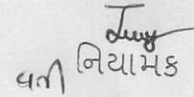 વતી નિયામક